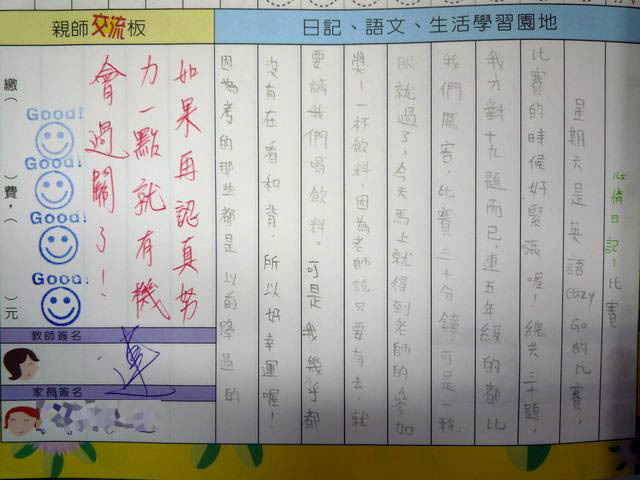 日記、語文、生活學習園地
心情日記!比賽
星期六是英語eazy Go的比賽,
比賽的時候好緊張喔!總共三十題,
我才對十九題而已,連五年級的都比
我們厲害,比賽三十分鐘,可是一轉
眼就過了,今天馬上就得到老師的參加
獎!一杯飲料,因為老師說只要有去,就
要請我們喝飲料。可是我幾乎都
沒有在看和背,所以好幸運喔!
因為考的那些都是以前學過的
親師交流板
如果再認真努
力一點就有機
會過關了!
Good!
Good!
Good!
Good!
繳( )費,( )元
教師簽名
家長簽名